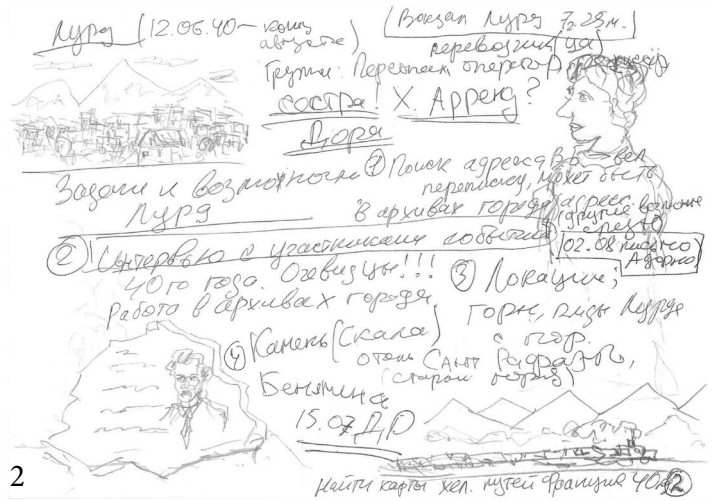 Лурд (12.06.40 — конец августа)
(Вокзал Лурд 7г 25м.
перевозчица)
Группы: Персонаж, оператор, режиссёр
сестра! Х. Арренд?
Дора
Задачи и возможности
Лурд
① Поиск адреса В.Б. вел
переписку, может быть
в архивах города адрес.
другие возможно
срезно
02.08 письмо
Адорно
② Интервью с участниками событий
40го года. Очевидцы!!!
Работа в архивах города
③ Локации;
горы, виды Лурда
с гор.
④ Камень (Скала)
Беньямина
отель Сант
(старый город)
15.07 ДР
Найти карты жел. путей Франция 40г ②
2